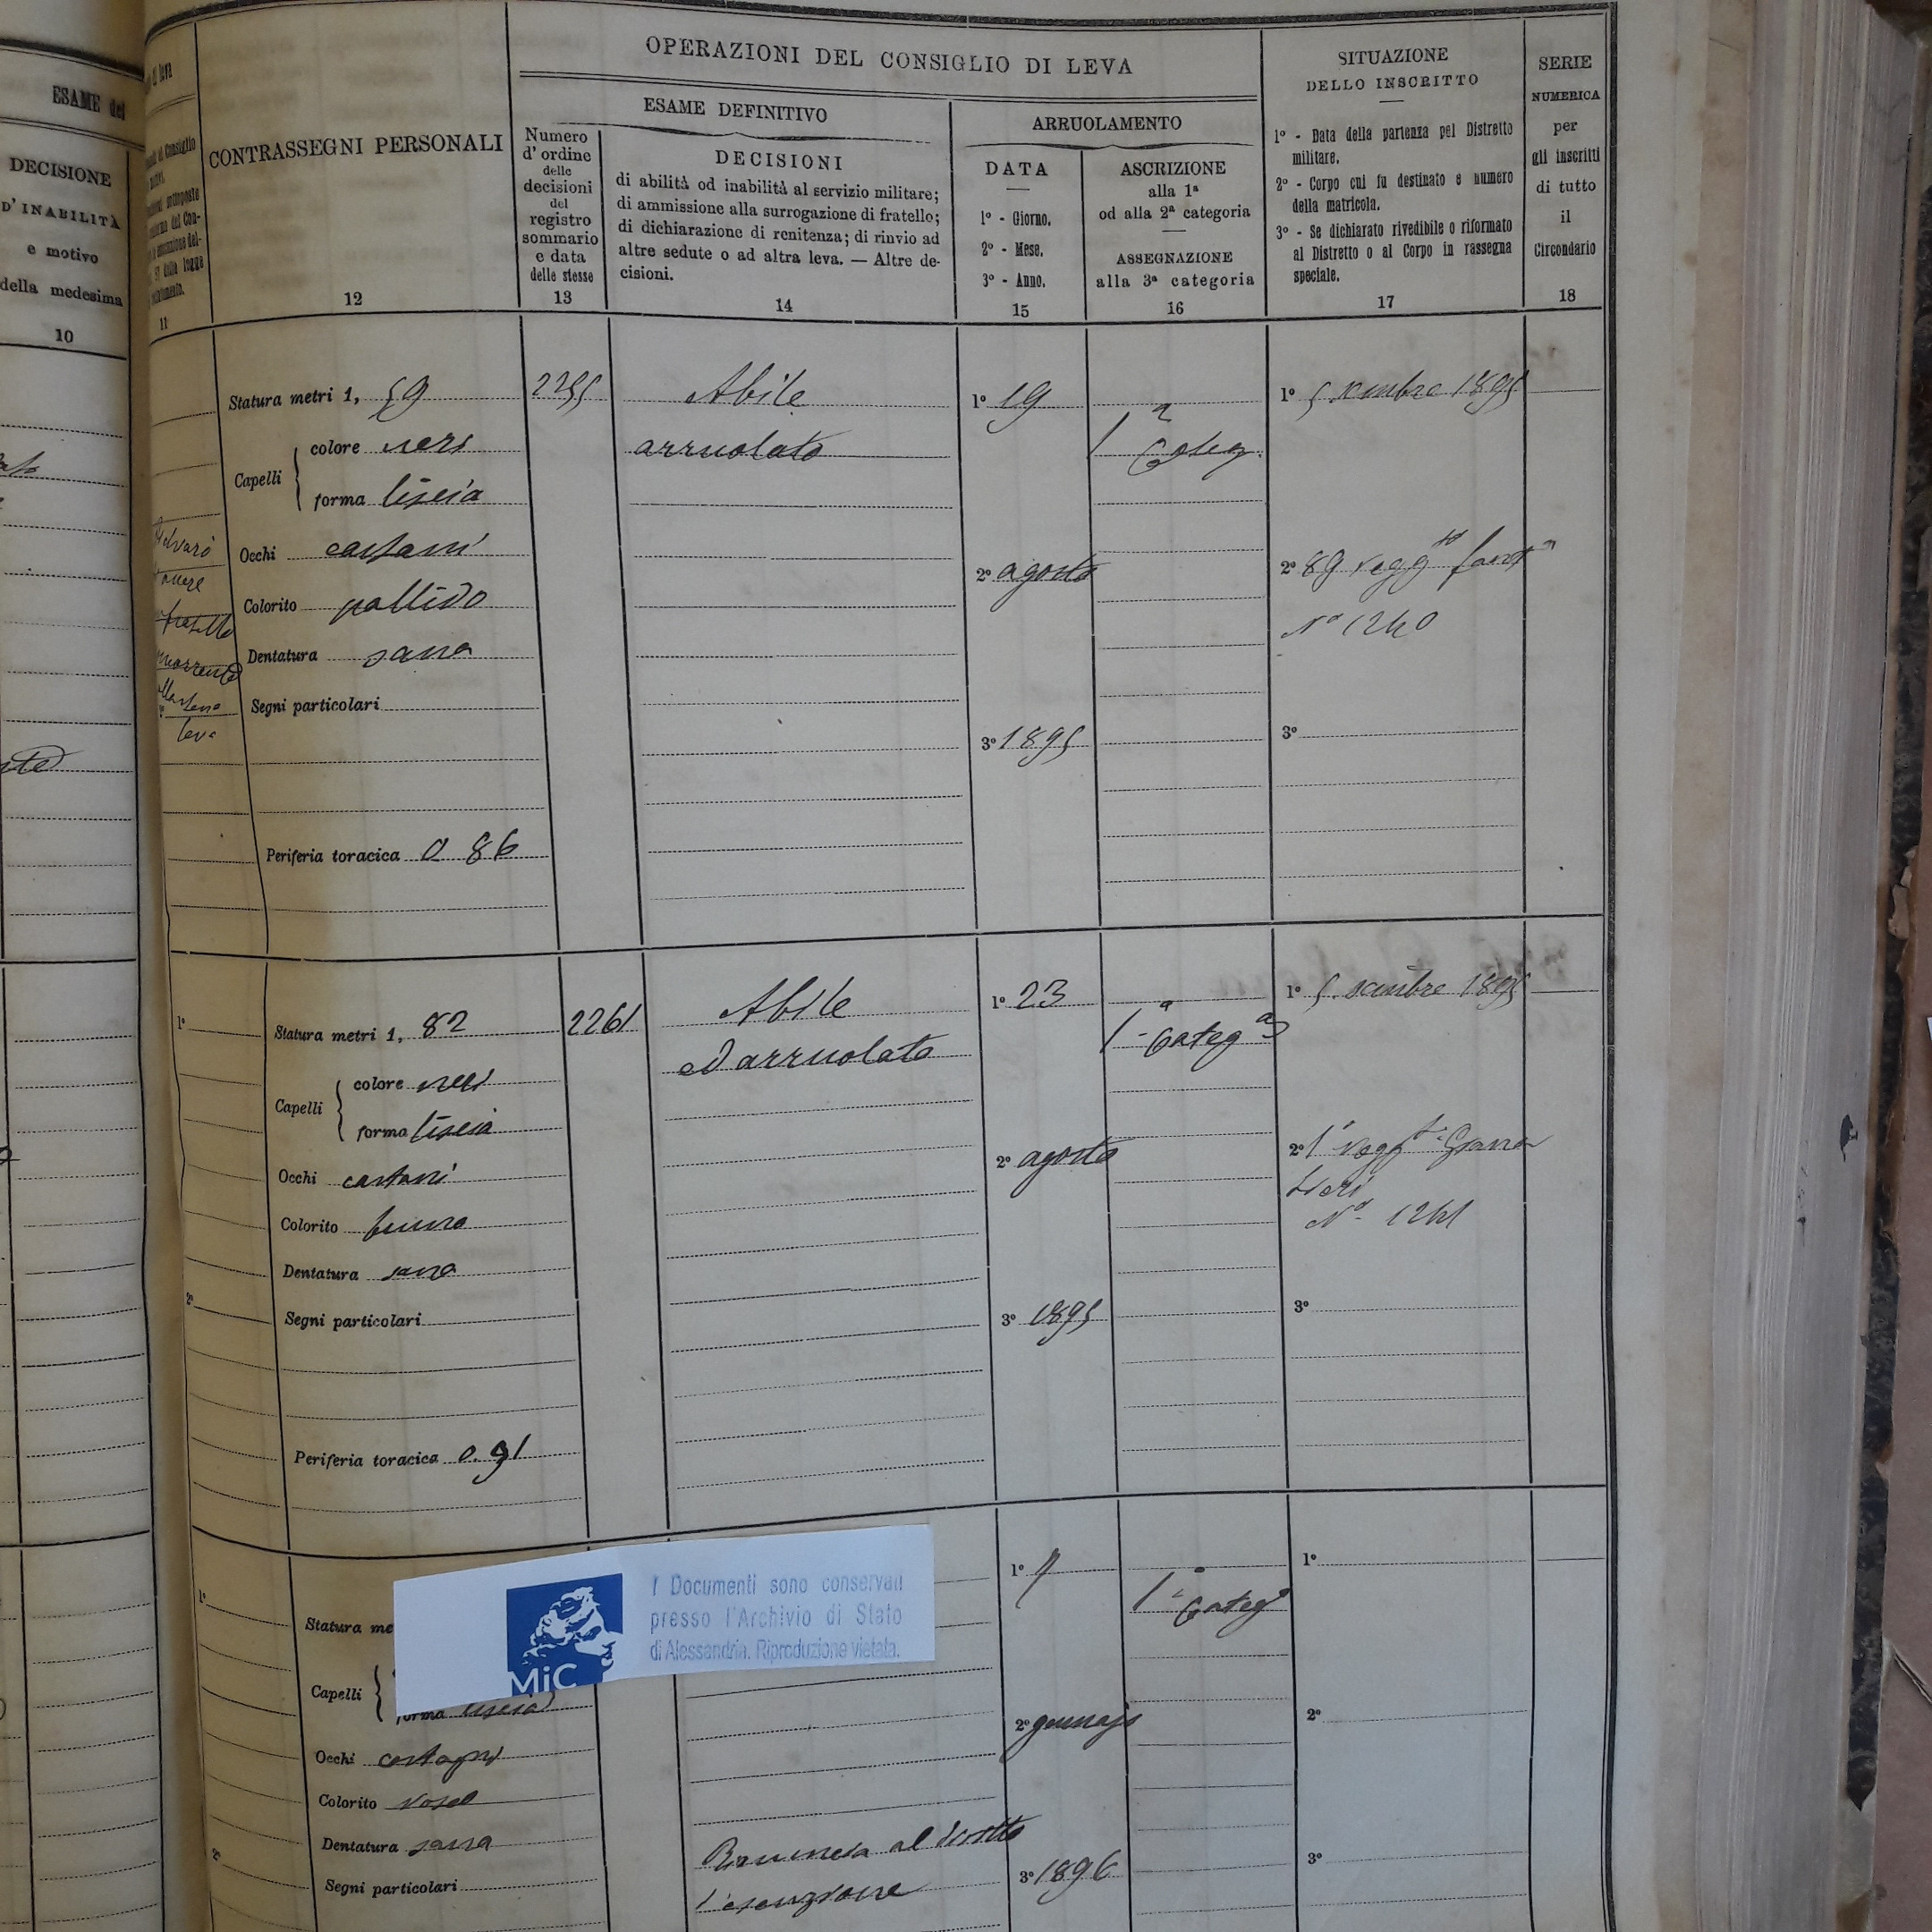 ESAME del
DECISIONE
D'INABILITÀ
e motivo
della medesima
10
11
CONTRASSEGNI PERSONALI
12
OPERAZIONI DEL CONSIGLIO DI LEVA
ESAME DEFINITIVO
Numero
d'ordine
delle
decisioni
del
registro
sommario
e data
delle stesse
13
DECISIONI
di abilità od inabilità al servizio militare;
di ammissione alla surrogazione di fratello;
di dichiarazione di renitenza; di rinvio ad
altre sedute o ad altra leva. — Altre de-
cisioni.
14
ARRUOLAMENTO
DATA
1º - Giorno.
2º - Mese.
3º - Anno.
15
ASCRIZIONE
alla 1ª
od alla 2ª categoria
ASSEGNAZIONE
alla 3ª categoria
16
SITUAZIONE
DELLO INSCRITTO
1º - Data della partenza pel Distretto
militare.
2º - Corpo cui fu destinato e numero
della matricola.
3º - Se dichiarato rivedibile o riformato
al Distretto o al Corpo in rassegna
speciale.
17
SERIE
NUMERICA
per
gli inscritti
di tutto
il
Circondario
18
fratello
leva
Statura metri 1, 59
Capelli
colore neri
forma liscia
Occhi castani
Colorito pallido
Dentatura sana
Segni particolari
Periferia toracica 0 86
2255
Abile
arruolato
1º 19
2º agosto
3º 1895
1ª
Categ.
1º 5 Xcembre 1895
2º 89 regg to fant a
Nº 1240
3º
1º
2º
Statura metri 1, 82
Capelli
colore neri
forma liscia
Occhi castani
Colorito bruno
Dentatura sana
Segni particolari
Periferia toracica 0.91
2261
Abile
ed arruolato
1º 23
2º agosto
3º 1895
1ª Categ a
1º 5 Xcembre 1895
2º 1º regg to Grana
tieri
Nº 1241
3º
1º
2º
Statura me
Capelli
forma liscia
Occhi castagni
Colorito roseo
Dentatura sana
Segni particolari
I Documenti sono conservati
presso l'Archivio di Stato
di Alessandria. Riproduzione vietata.
MiC
Rinuncia al diritto
l'esenzione
1º
2º gennajo
3º 1896
1ª Categ a
1º
2º
3º